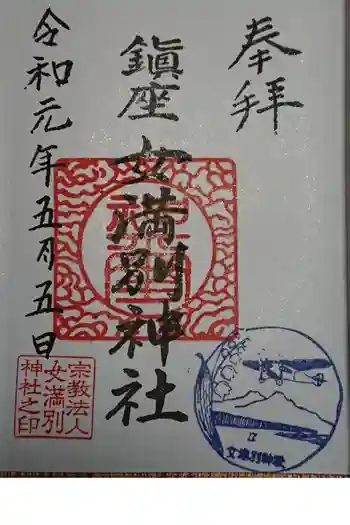 奉拝
鎮座 女満別神社
令和元年五月五日
宗教法人
女満別
神社之印
女満別神社